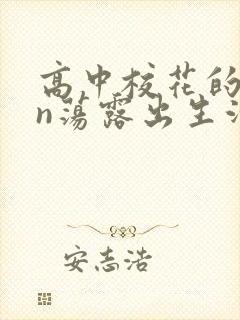 高中校花的
n荡露出生活
安志浩